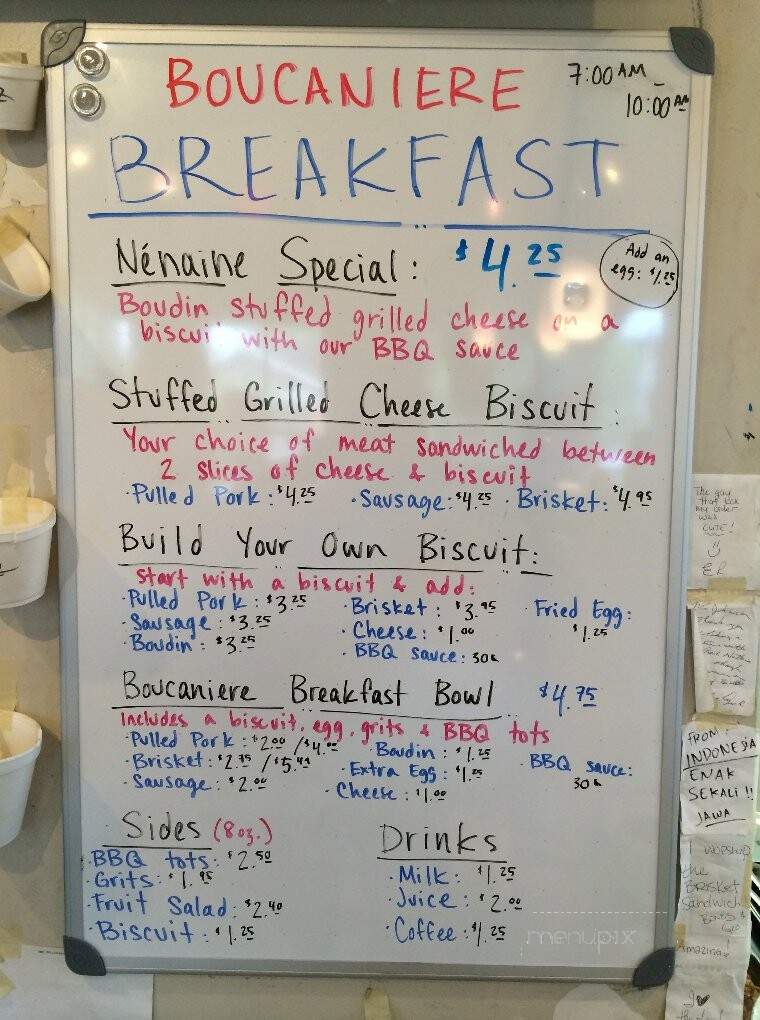 BOUCANIERE
7:00 AM -
10:00 AM
BREAKFAST
Nénaine Special: $4.25
Add an
egg: $1.25
Boudin stuffed grilled cheese on a
biscuit with our BBQ sauce
Stuffed Grilled Cheese Biscuit:
Your choice of meat sandwiched between
2 slices of cheese & biscuit
·Pulled Pork: $4.25 ·Sausage: $4.25 ·Brisket: $4.95
Build Your Own Biscuit:
Start with a biscuit & add:
·Pulled Pork: $3.25 ·Brisket: $3.95 ·Fried Egg:
·Sausage: $3.25 ·Cheese: $1.00 $1.25
·Boudin: $3.25 ·BBQ sauce: 30¢
Boucaniere Breakfast Bowl $4.75
Includes a biscuit, egg, grits & BBQ tots
·Pulled Pork: $2.00/$4.00 ·Boudin: $1.25 ·BBQ sauce:
·Brisket: $2.75/$5.49 ·Extra Egg: $1.25 30¢
·Sausage: $2.00 ·Cheese: $1.00
Sides (8oz.)
·BBQ tots: $2.50
·Grits: $1.95
·Fruit Salad: $2.40
·Biscuit: $1.25
Drinks
·Milk: $1.25
·Juice: $2.00
·Coffee: $1.25
menupix
The guy
that took
my order
was
CUTE!
ER
FROM:
INDONESIA
ENAK
SEKALI!!
JAWA
I WORSHIP
the
BRISKET
Sandwich
Amazing!
I ♥